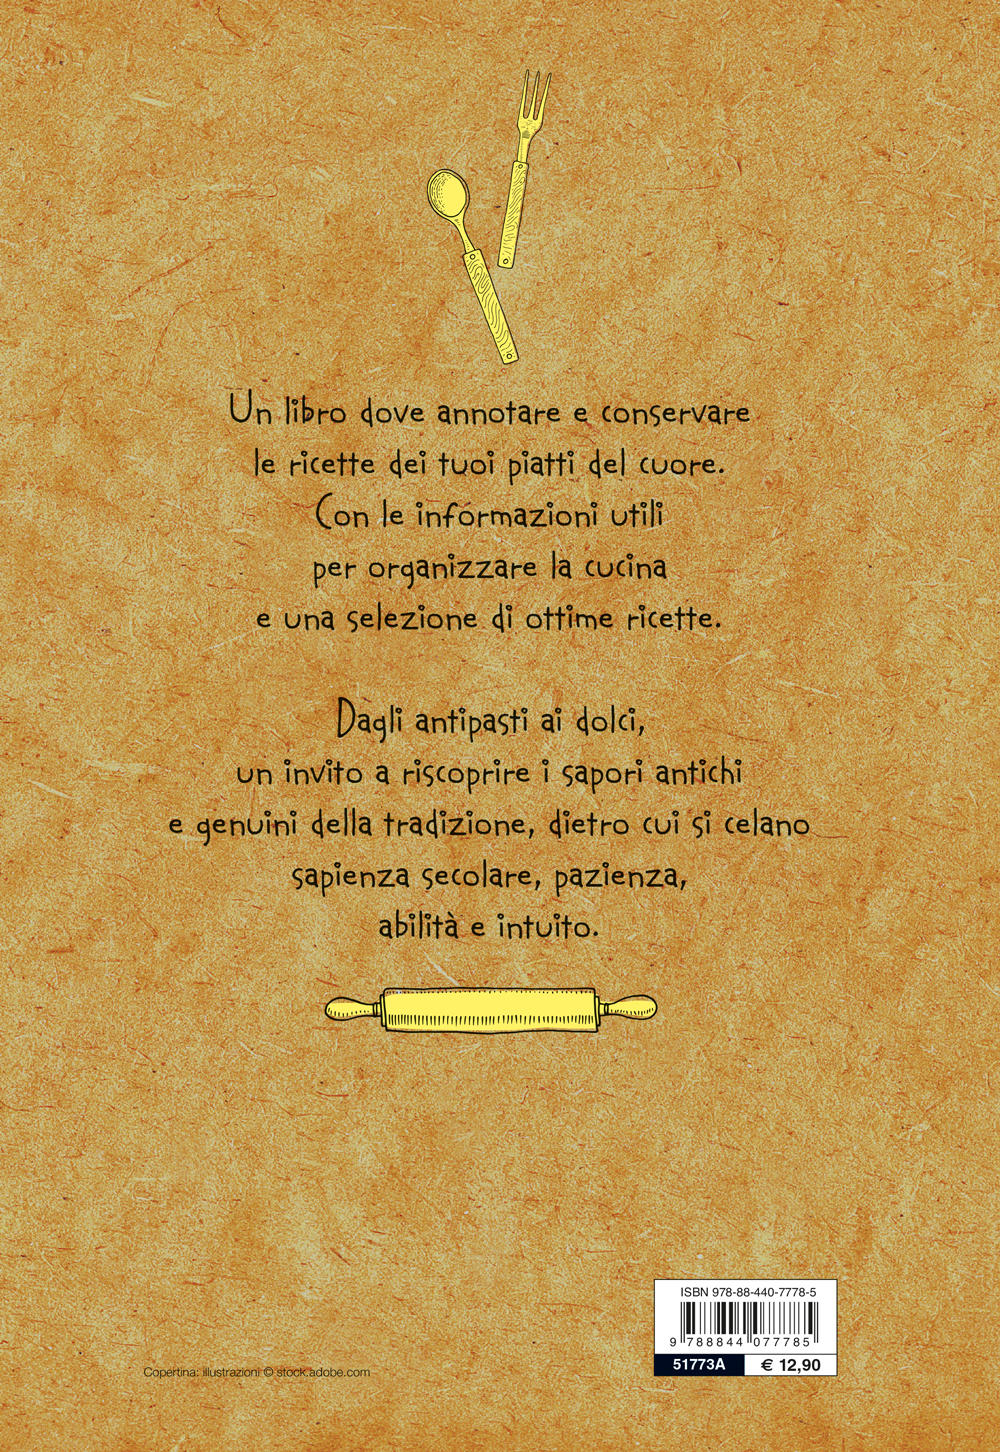 Un libro dove annotare e conservare
le ricette dei tuoi piatti del cuore.
Con le informazioni utili
per organizzare la cucina
e una selezione di ottime ricette.
Dagli antipasti ai dolci,
un invito a riscoprire i sapori antichi
e genuini della tradizione, dietro cui si celano
sapienza secolare, pazienza,
abilità e intuito.
ISBN 978-88-440-7778-5
9 788844 077785
51773A € 12,90
Copertina: illustrazioni © stock.adobe.com